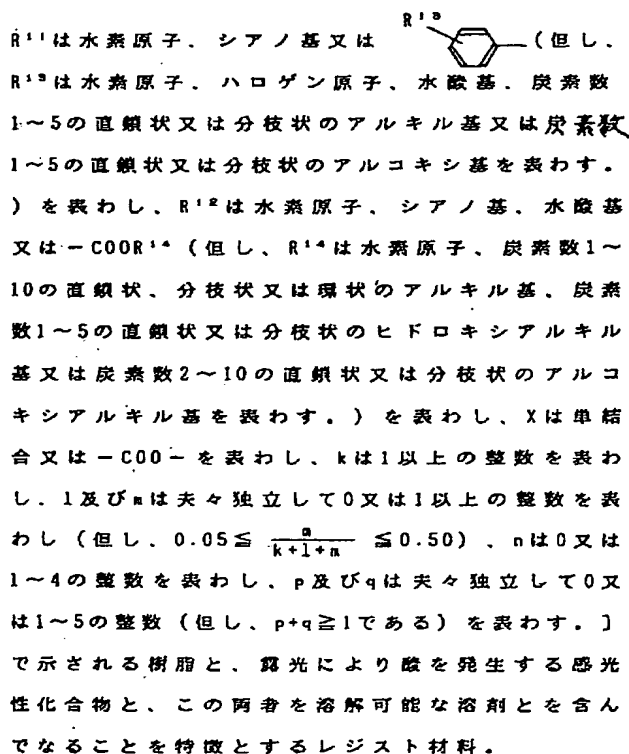 R¹³
R¹¹は水素原子、シアノ基又は (但し、
R¹³は水素原子、ハロゲン原子、水酸基、炭素数
1～5の直鎖状又は分枝状のアルキル基又は炭素数
1～5の直鎖状又は分枝状のアルコキシ基を表わす。
)を表わし、R¹²は水素原子、シアノ基、水酸基
又は－COOR¹⁴(但し、R¹⁴は水素原子、炭素数1～
10の直鎖状、分枝状又は環状のアルキル基、炭素
数1～5の直鎖状又は分枝状のヒドロキシアルキル
基又は炭素数2～10の直鎖状又は分枝状のアルコ
キシアルキル基を表わす。)を表わし、Xは単結
合又は－COO－を表わし、kは1以上の整数を表わ
し、l及びmは夫々独立して0又は1以上の整数を表
わし(但し、0.05≦ m/(k+l+m) ≦0.50)、nは0又は
1～4の整数を表わし、p及びqは夫々独立して0又
は1～5の整数(但し、p+q≧1である)を表わす。]
で示される樹脂と、露光により酸を発生する感光
性化合物と、この両者を溶解可能な溶剤とを含ん
でなることを特徴とするレジスト材料。